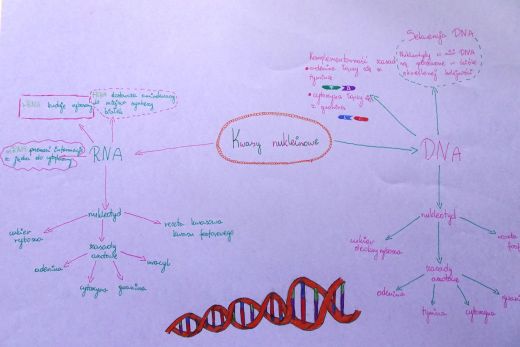 Sekwencja DNA
Nukleotydy w nici DNA
są ułożone w ściśle
określonej kolejności
Komplementarność zasad
• adenina łączy się z
tyminą
• cytozyna łączy się
z guaniną
rRNA buduje rybosomy
tRNA dostarcza aminokwasy
do miejsca syntezy
białka
mRNA przenosi informację
z jądra do cytoplazmy
RNA
Kwasy nukleinowe
DNA
nukleotyd
cukier
ryboza
zasady
azotowe
reszta kwasowa
kwasu fosforowego
adenina
cytozyna
guanina
uracyl
nukleotyd
cukier
deoksyryboza
zasady
azotowe
reszta
adenina
tymina
cytozyna